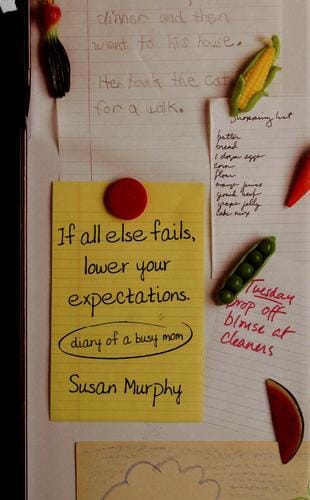 dinner and then
went to his house.
He took the cat
for a walk.
Shopping list
butter
bread
1 dozen eggs
corn
flour
orange juice
ground beef
grape jelly
cake mix
If all else fails,
lower your
expectations.
diary of a busy mom
Susan Murphy
Tuesday
Drop off
blouse at
cleaners